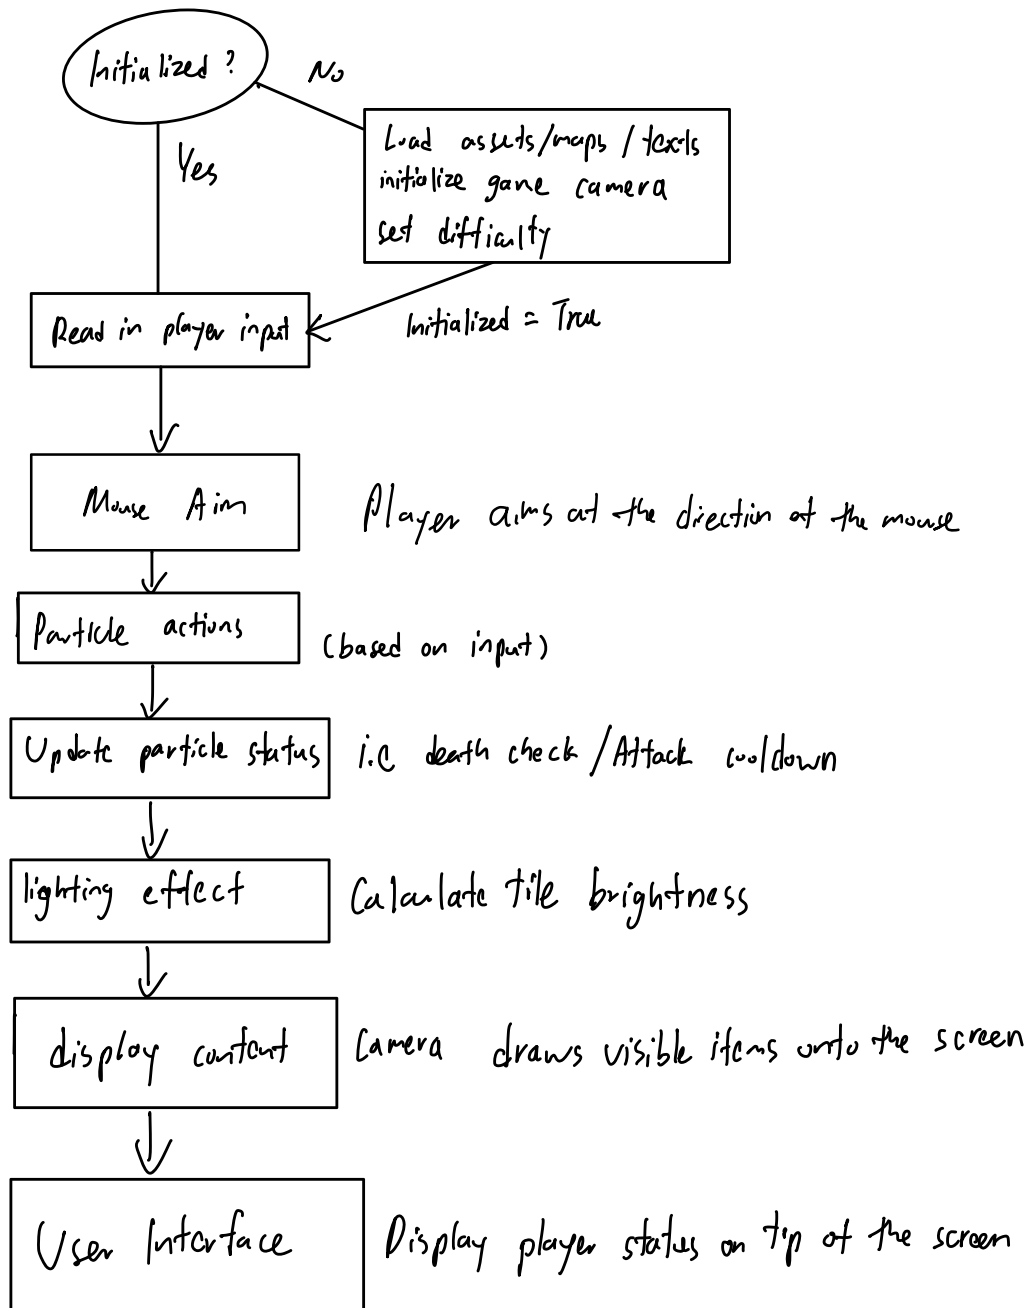 Initialized ?
No
Yes
Load assets/maps / texts
initialize game camera
set difficulty
Read in player input
Initialized = True
Mouse Aim
Player aims at the direction of the mouse
Particle actions
(based on input)
Update particle status
i.e death check /Attack cooldown
lighting effect
Calculate tile brightness
display content
Camera draws visible items onto the screen
User Interface
Display player status on top of the screen